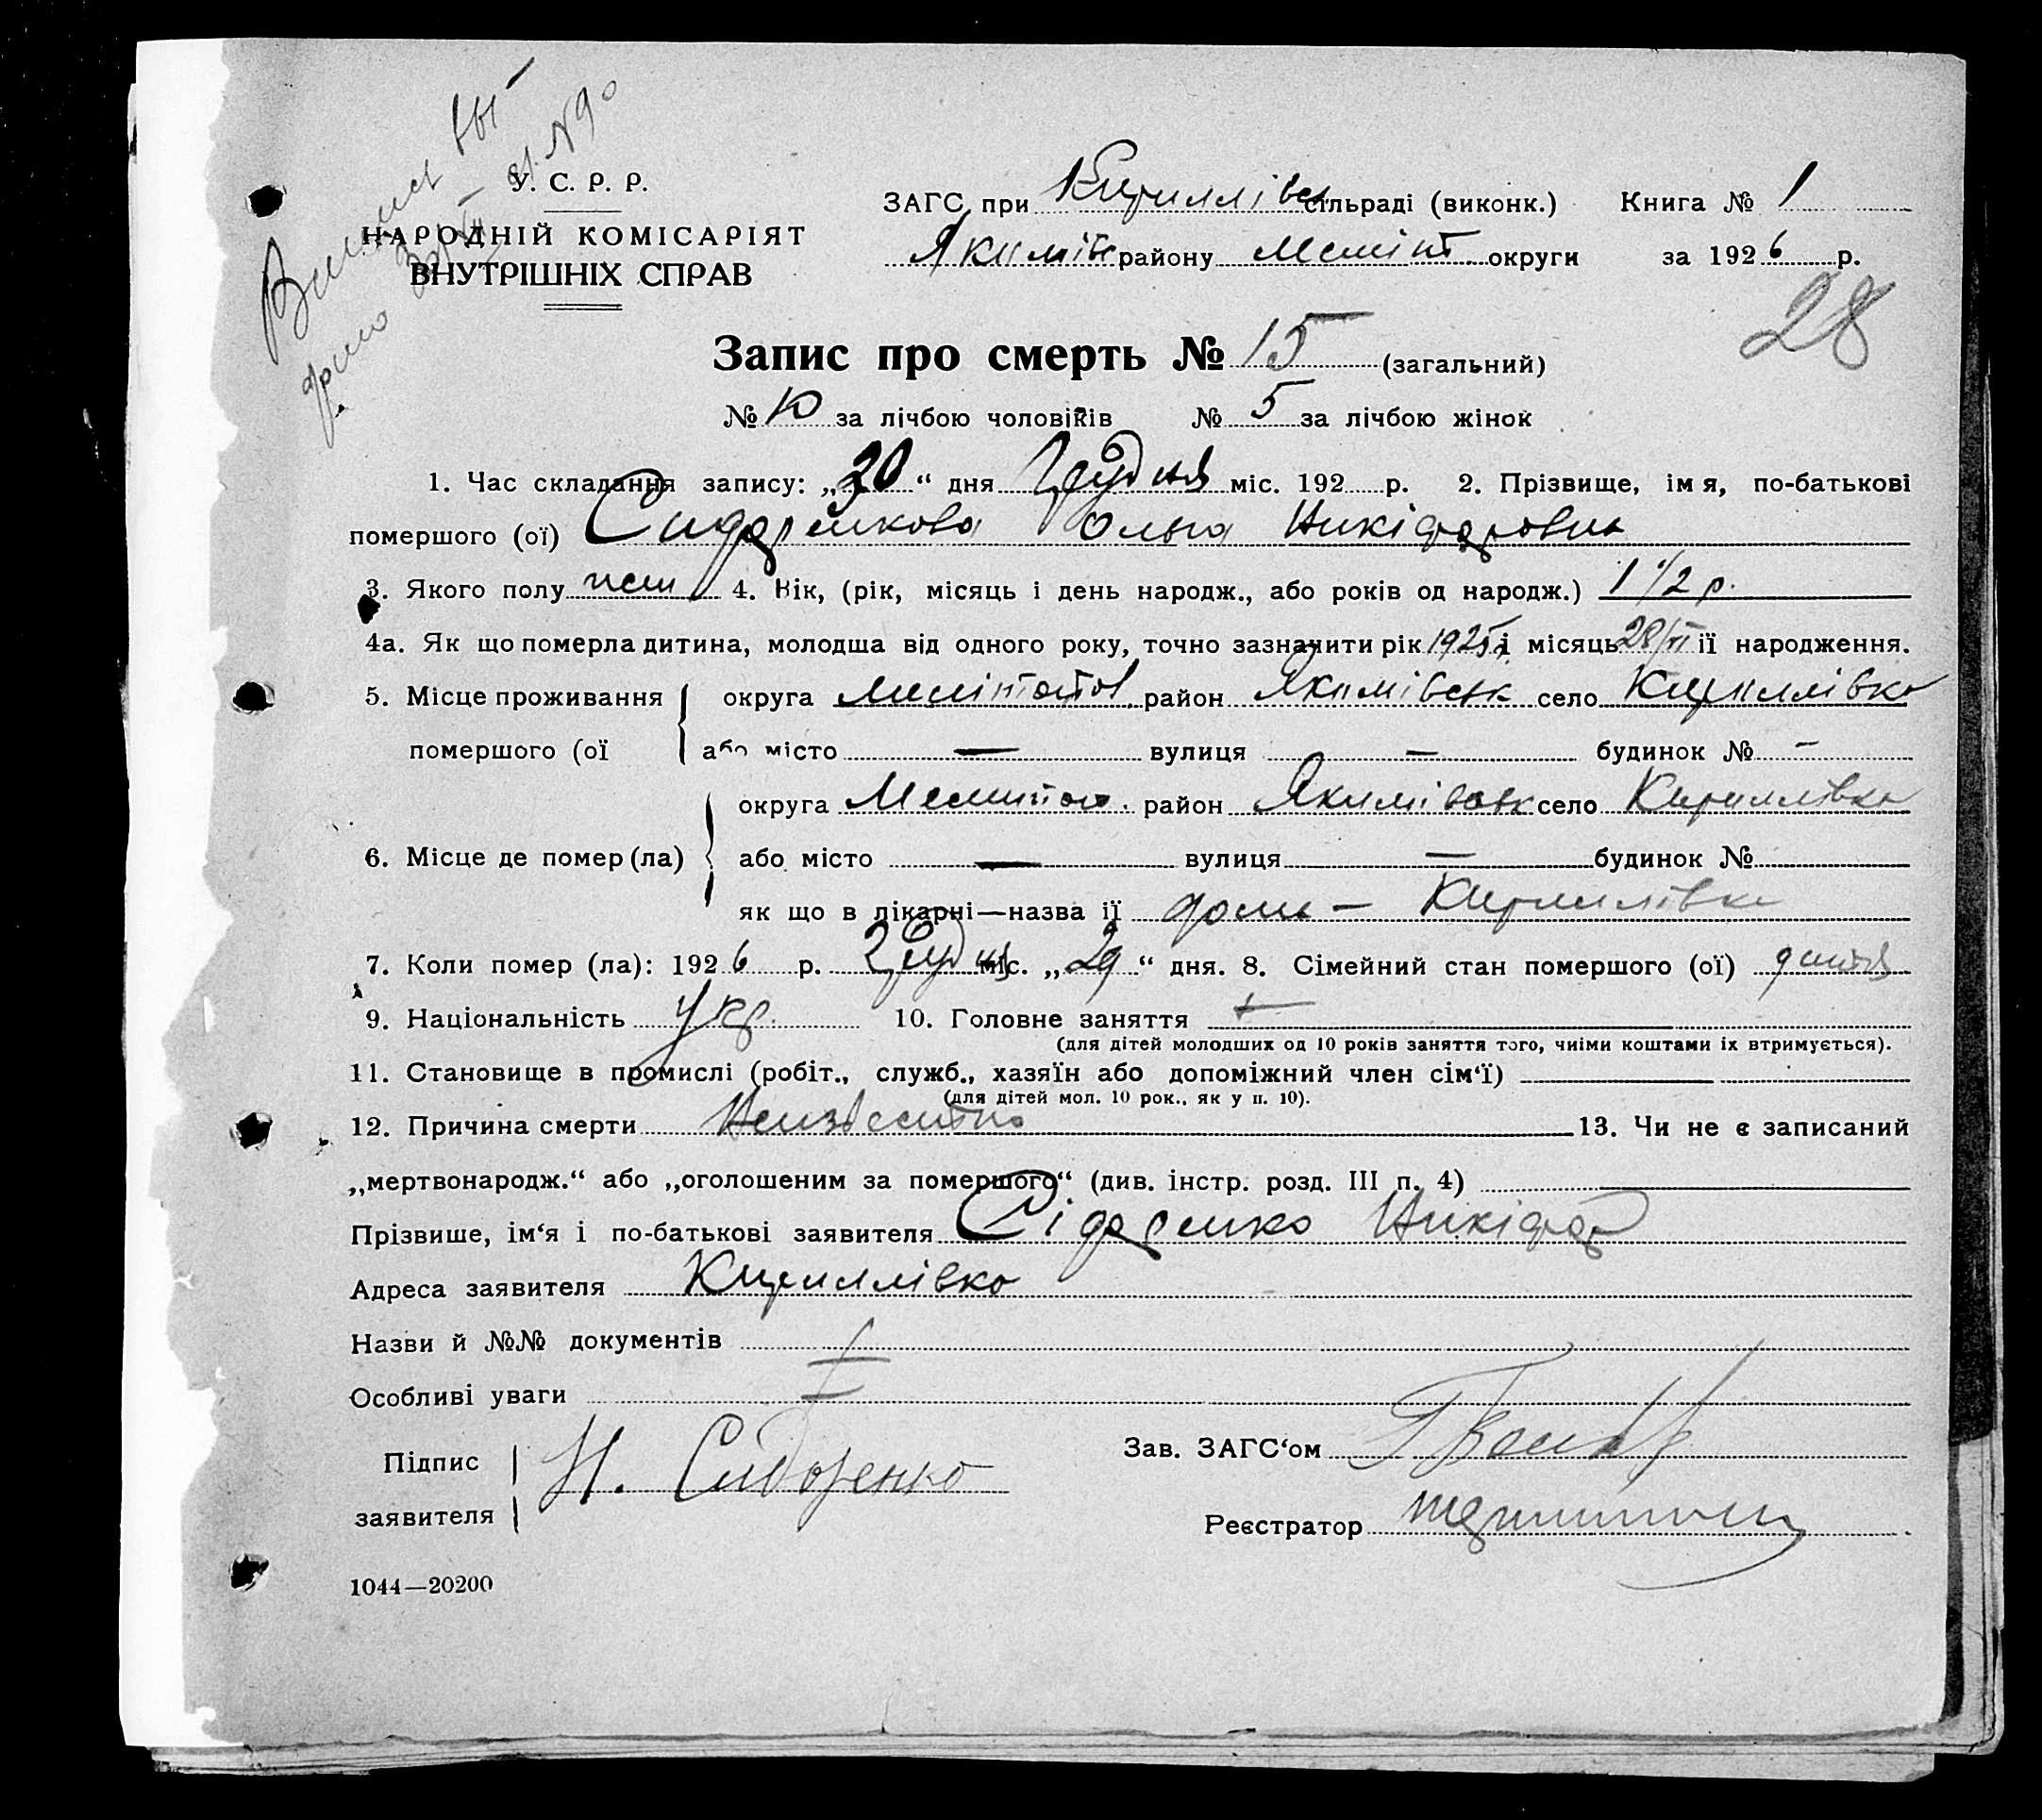 У. С. Р. Р.
НАРОДНІЙ КОМІСАРІЯТ
ВНУТРІШНІХ СПРАВ
ЗАГС при Кириллівс сільраді (виконк.) Книга № 1
Якимів району Меліт. округи за 1926 р.
28
Запис про смерть № 15 (загальний)
№ 10 за лічбою чоловіків № 5 за лічбою жінок
1. Час складання запису: „30“ дня Грудня міс. 192 р. 2. Прізвище, ім я, по-батькові
помершого (ої) Сидоренкова Ольга Никіфоровна
3. Якого полу жен 4. Вік, (рік, місяць і день народж., або років од народж.) 1 1/2 р.
4а. Як що померла дитина, молодша від одного року, точно зазначити рік 1925 і місяць 28/VI ії народження.
5. Місце проживання округа Мелітопол. район Якимівськ село Кириллівка
помершого (ої або місто — вулиця — будинок № —
округа Мелитоп. район Якимівськ село Кириллівка
6. Місце де помер (ла) або місто — вулиця — будинок №
як що в лікарні—назва ії дома — Кириллівка
7. Коли помер (ла): 1926 р. Грудня міс. „29“ дня. 8. Сімейний стан помершого (ої) дитя
9. Національність Укр. 10. Головне заняття —
(для дітей молодших од 10 років заняття того, чиіми коштами іх втримується).
11. Становище в промислі (робіт., служб., хазяїн або допоміжний член сім‘ї)
(для дітей мол. 10 рок., як у п. 10).
12. Причина смерти Неизвестно 13. Чи не є записаний
„мертвонародж.“ або „оголошеним за помершого“ (див. інстр. розд. III п. 4)
Прізвише, ім‘я і по-батькові заявителя Сідоренко Никіфор
Адреса заявителя Кириллівка
Назви й №№ документів
Особливі уваги
Підпис Н. Сидоренко Зав. ЗАГС‘ом
заявителя
Реєстратор
1044—20200